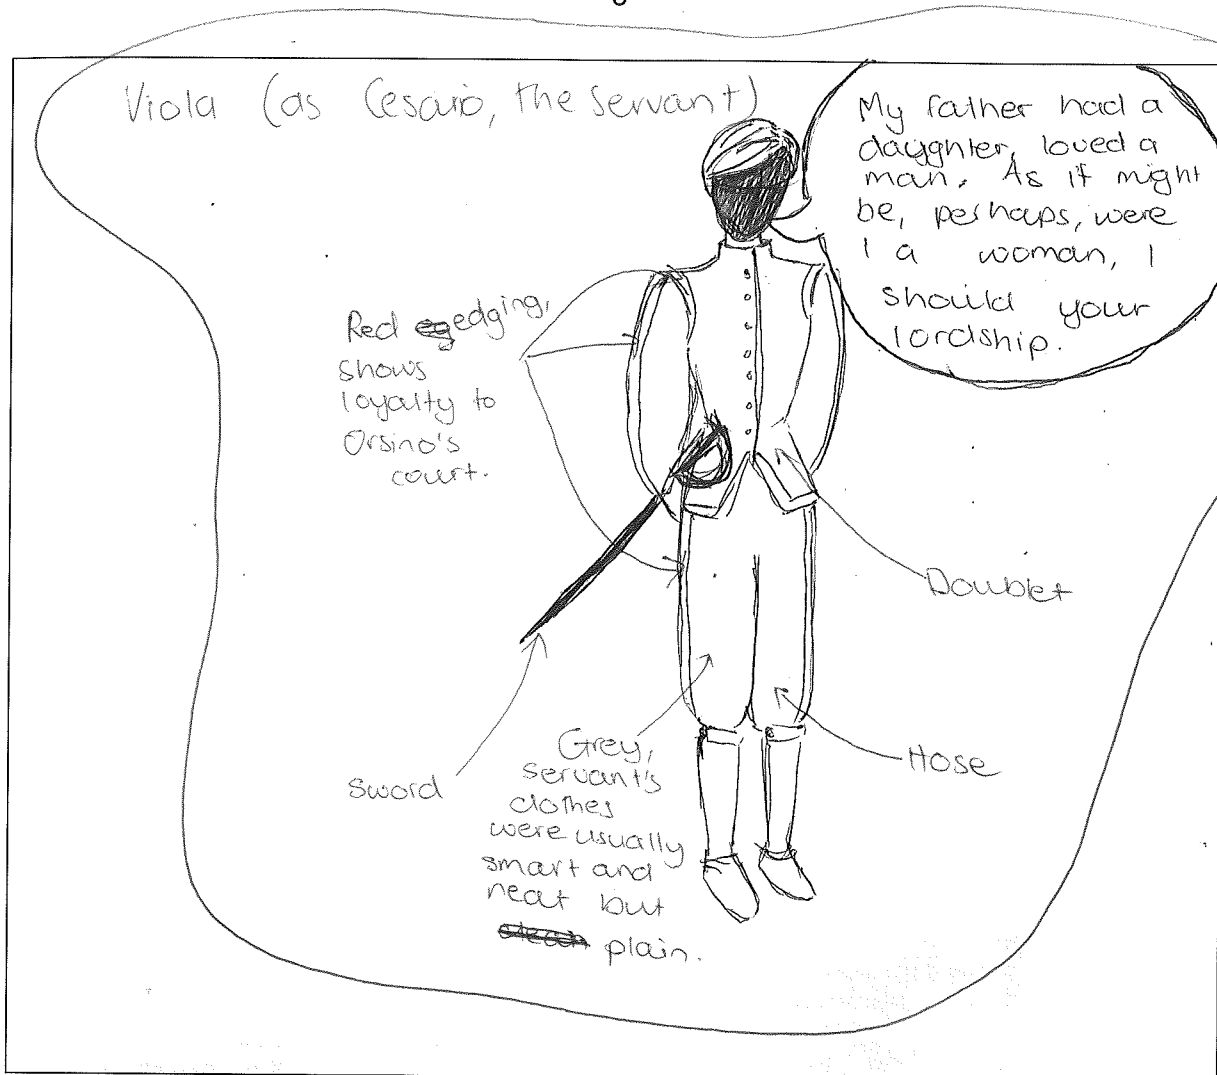 Viola (as Cesario, the servant)
My father had a
daygnter, loved a
man. As it might
be, perhaps, were
I a woman, I
should your
lordship.
Red edging,
shows
loyalty to
Orsino's
court.
Doublet
Hose
Sword
Grey,
servant's
clothes
were usually
smart and
neat but
plain.